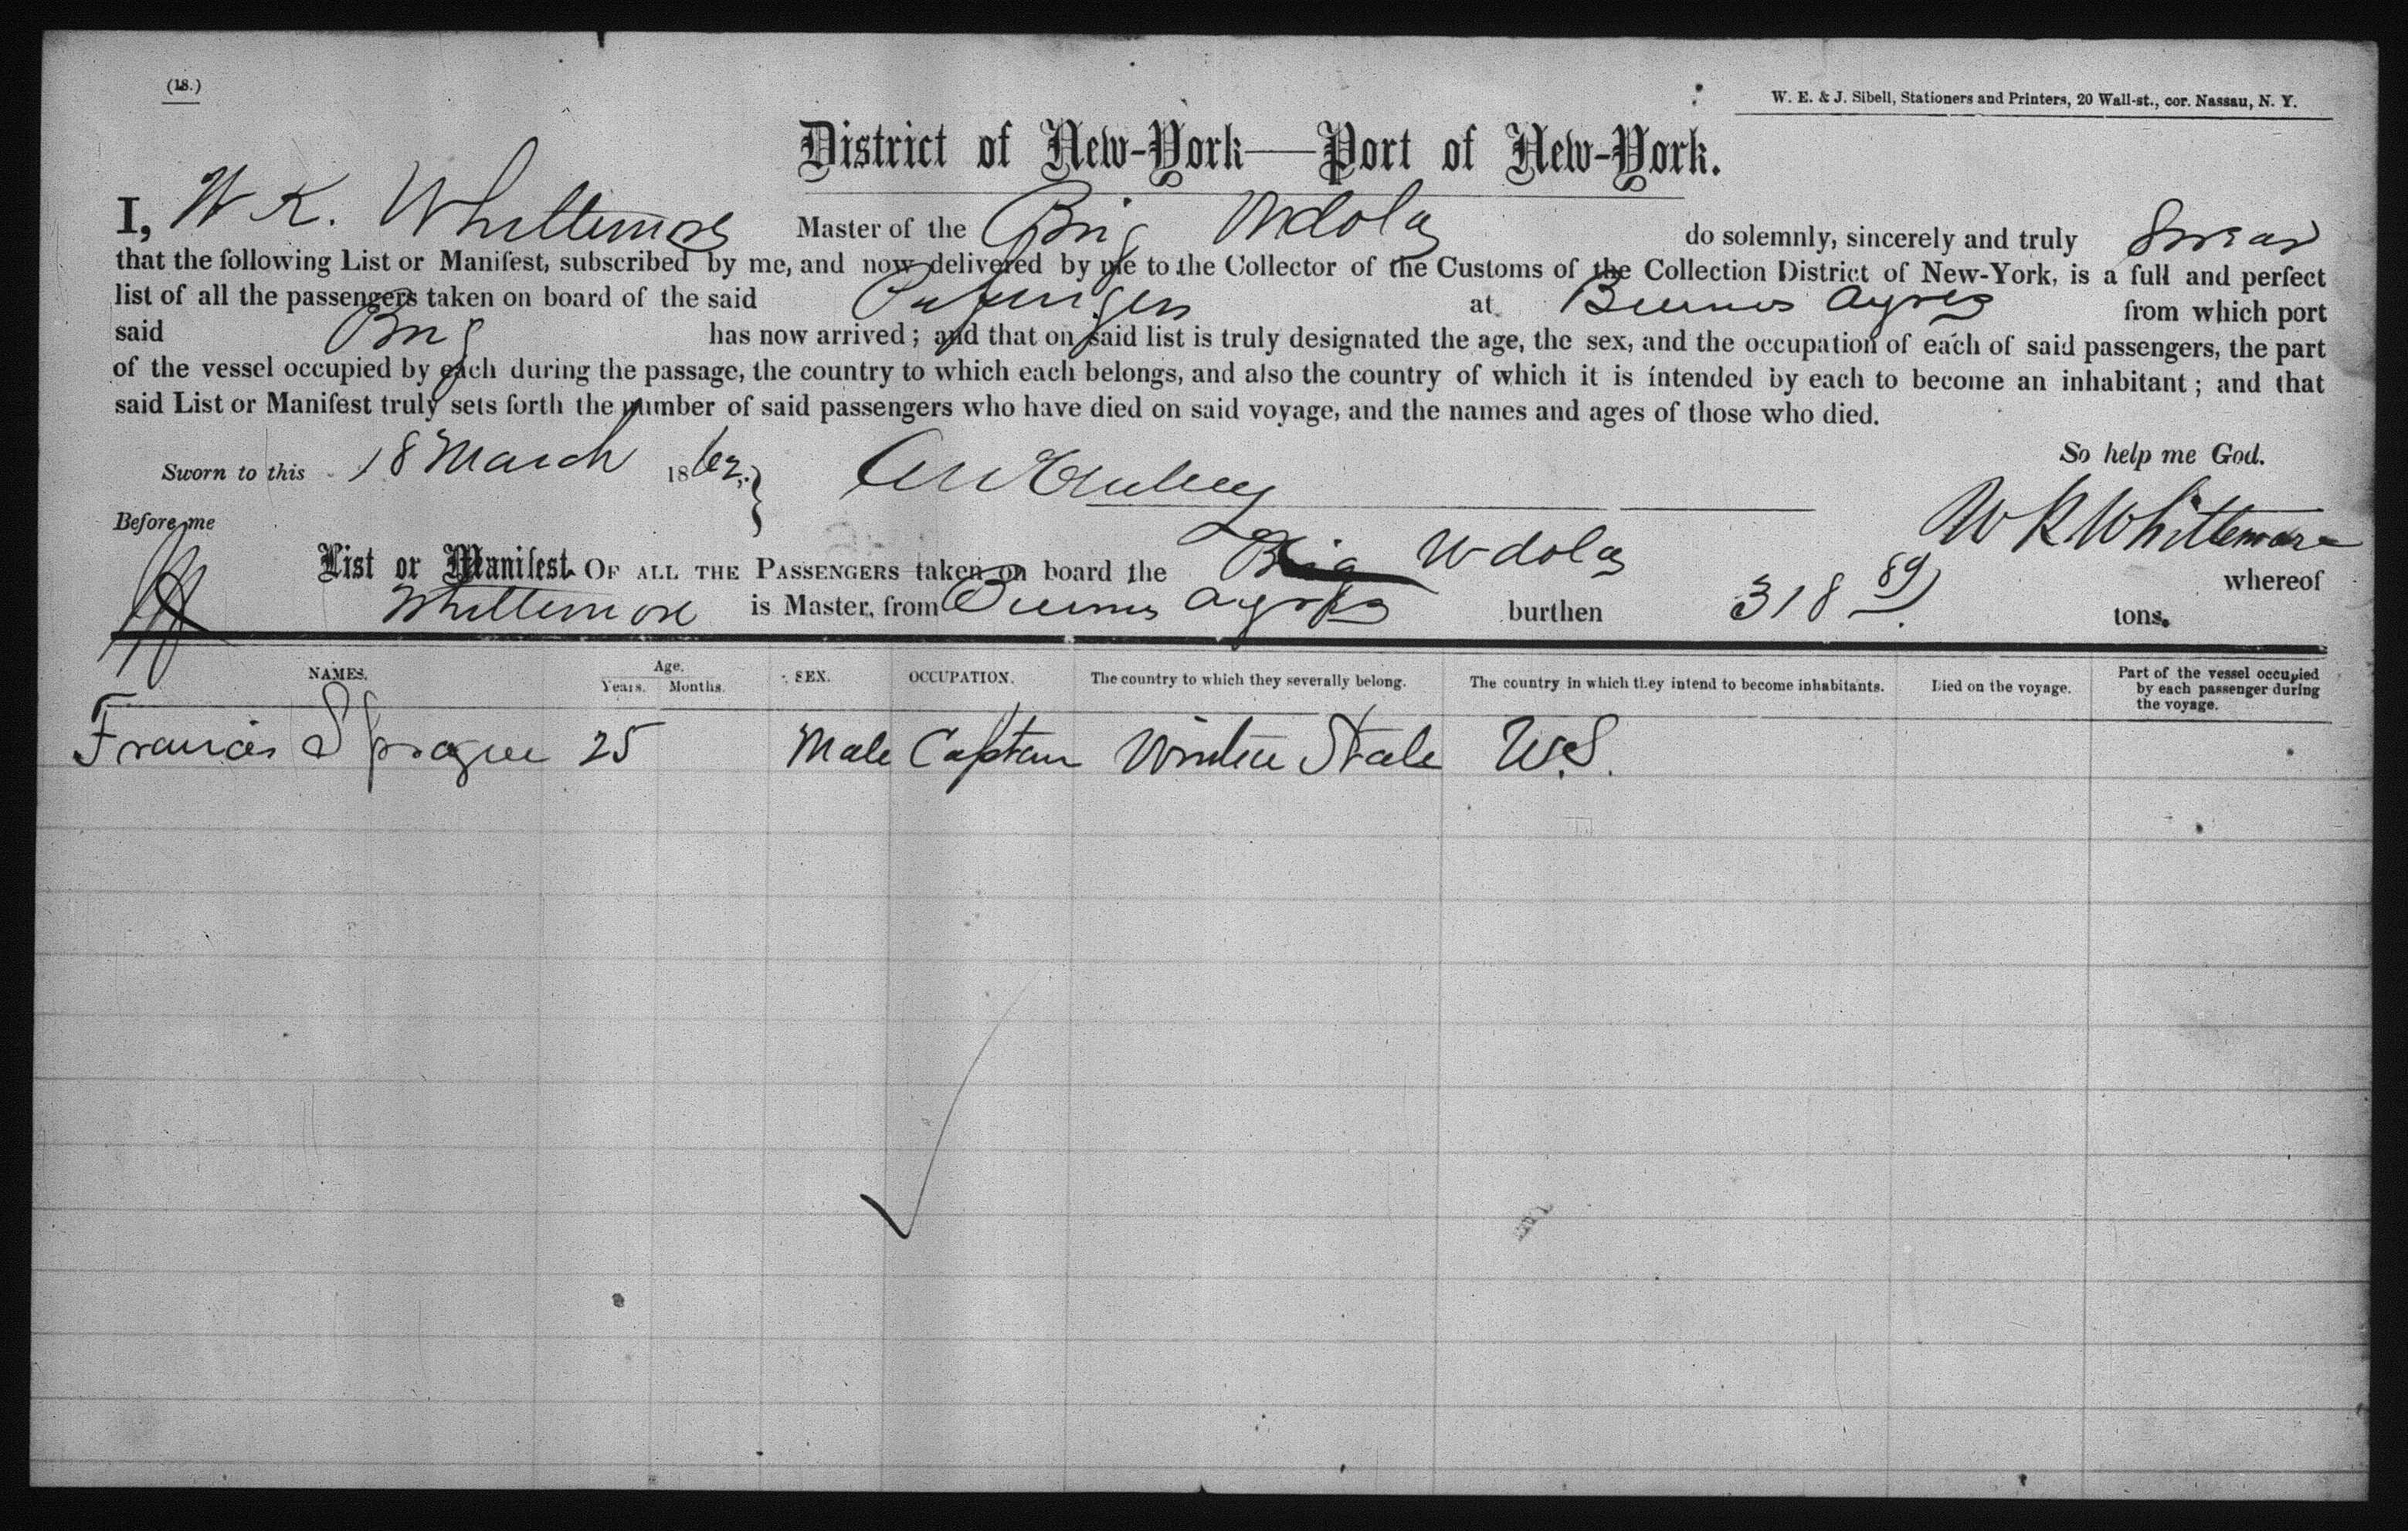 (18.)
W. E. & J. Sibell, Stationers and Printers, 20 Wall-st., cor. Nassau, N. Y.
District of New-York—Port of New-York.
I, W K. Whittemore Master of the Brig do solemnly, sincerely and truly swear
that the following List or Manifest, subscribed by me, and now delivered by me to the Collector of the Customs of the Collection District of New-York, is a full and perfect
list of all the passengers taken on board of the said Passengers at Buenos Ayres from which port
said Brig has now arrived; and that on said list is truly designated the age, the sex, and the occupation of each of said passengers, the part
of the vessel occupied by each during the passage, the country to which each belongs, and also the country of which it is intended by each to become an inhabitant; and that
said List or Manifest truly sets forth the number of said passengers who have died on said voyage, and the names and ages of those who died.
So help me God.
Sworn to this 18 March 1862.
W K Whittemore
Before me
List or Manifest OF ALL THE PASSENGERS taken on board the Brig whereof
Whittemore is Master, from Buenos Ayres burthen 318 89 tons.
NAMES. Age. Years. Months. SEX. OCCUPATION. The country to which they severally belong. The country in which they intend to become inhabitants. Died on the voyage. Part of the vessel occupied by each passenger during the voyage.
Francis Sprague 25 Male Captain United State U.S.